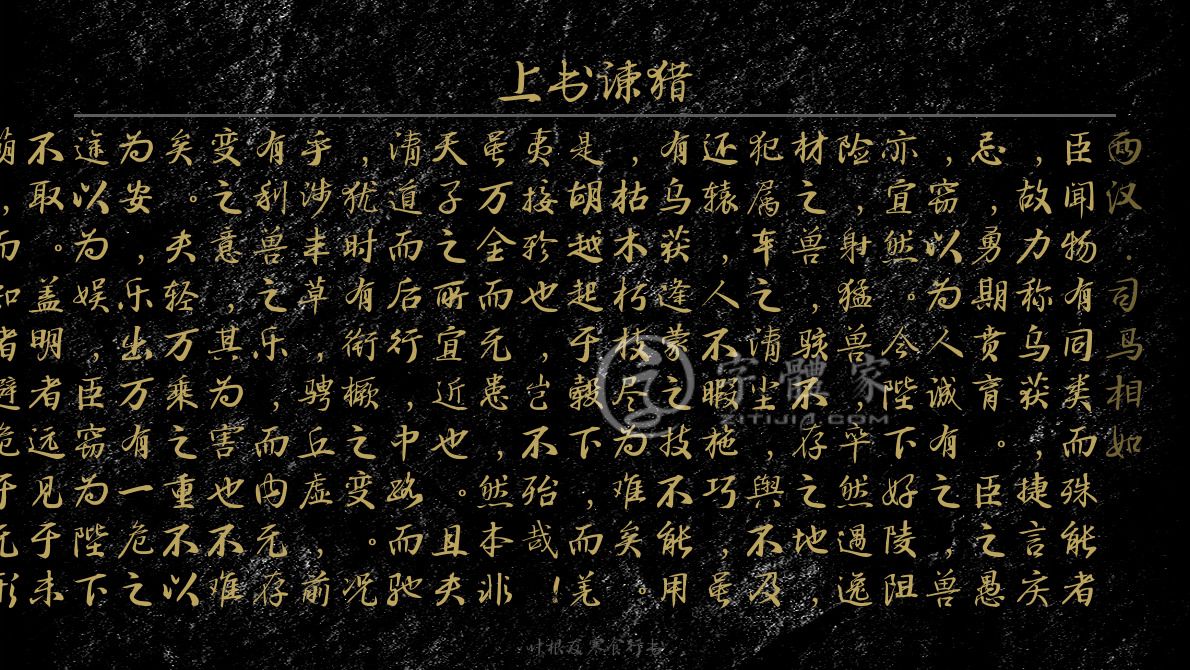 上书谏猎
西汉·司马相如
臣闻物有同类而殊能者
，故力称乌获，捷言庆
忌，勇期贲育。臣之愚
，窃以为人诚有之，兽
亦宜然。今陛下好陵阻
险，射猛兽，卒然遇逸
材之兽，骇不存之地，
犯属车之清尘，舆不及
还辕，人不暇施巧，虽
有乌获逢蒙之技不能用
，枯木朽枝尽为难矣。
是胡越起于毂下，而羌
夷接轸也，岂不殆哉！
虽万全而无患，然本非
天子之所宜近也。且夫
清道而后行，中路而驰
，犹时有衔橛之变。况
乎涉丰草，骋丘虚，前
有利兽之乐，而内无存
变之意，其为害也不难
矣。夫轻万乘之重不以
为安，乐出万有一危之
途以为娱，臣窃为陛下
不取。盖明者远见于未
萌，而知者避危于无形
字體家
ZITIJIA.COM
叶根友寒食行书